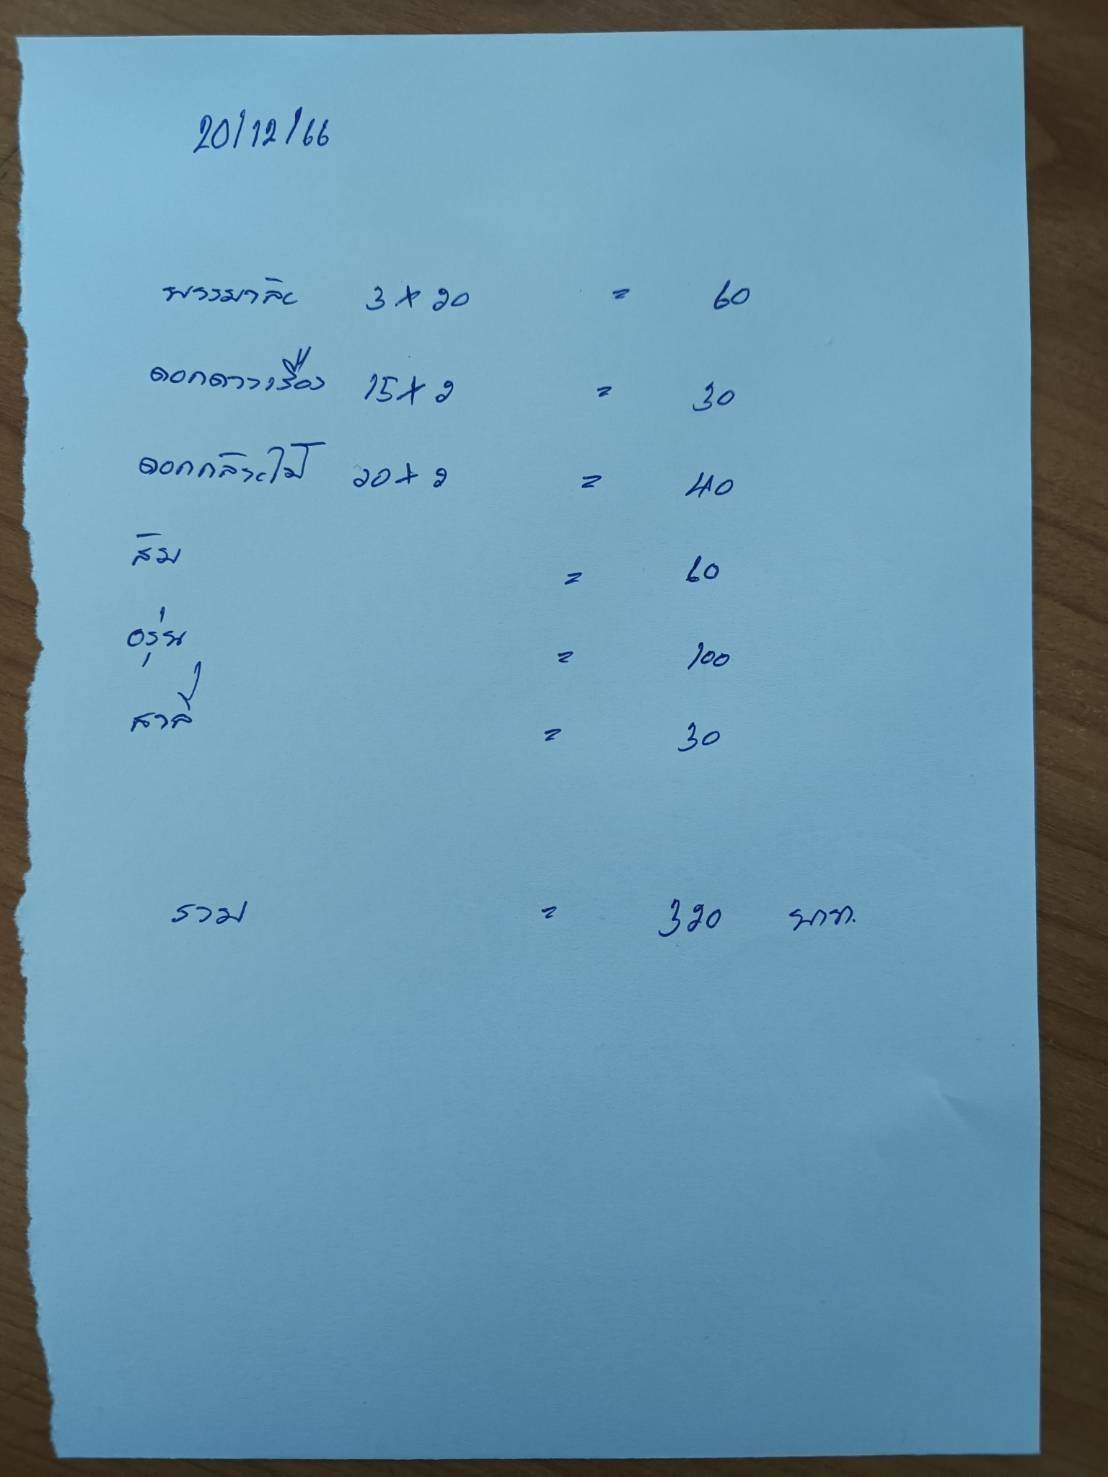 20/12/66
พวงมาลัย 3 x 20 = 60
ดอกดาวเรือง 15 x 2 = 30
ดอกกล้วยไม้ 20 x 2 = 40
ส้ม = 60
องุ่น = 100
สาลี่ = 30
รวม = 320 บาท.